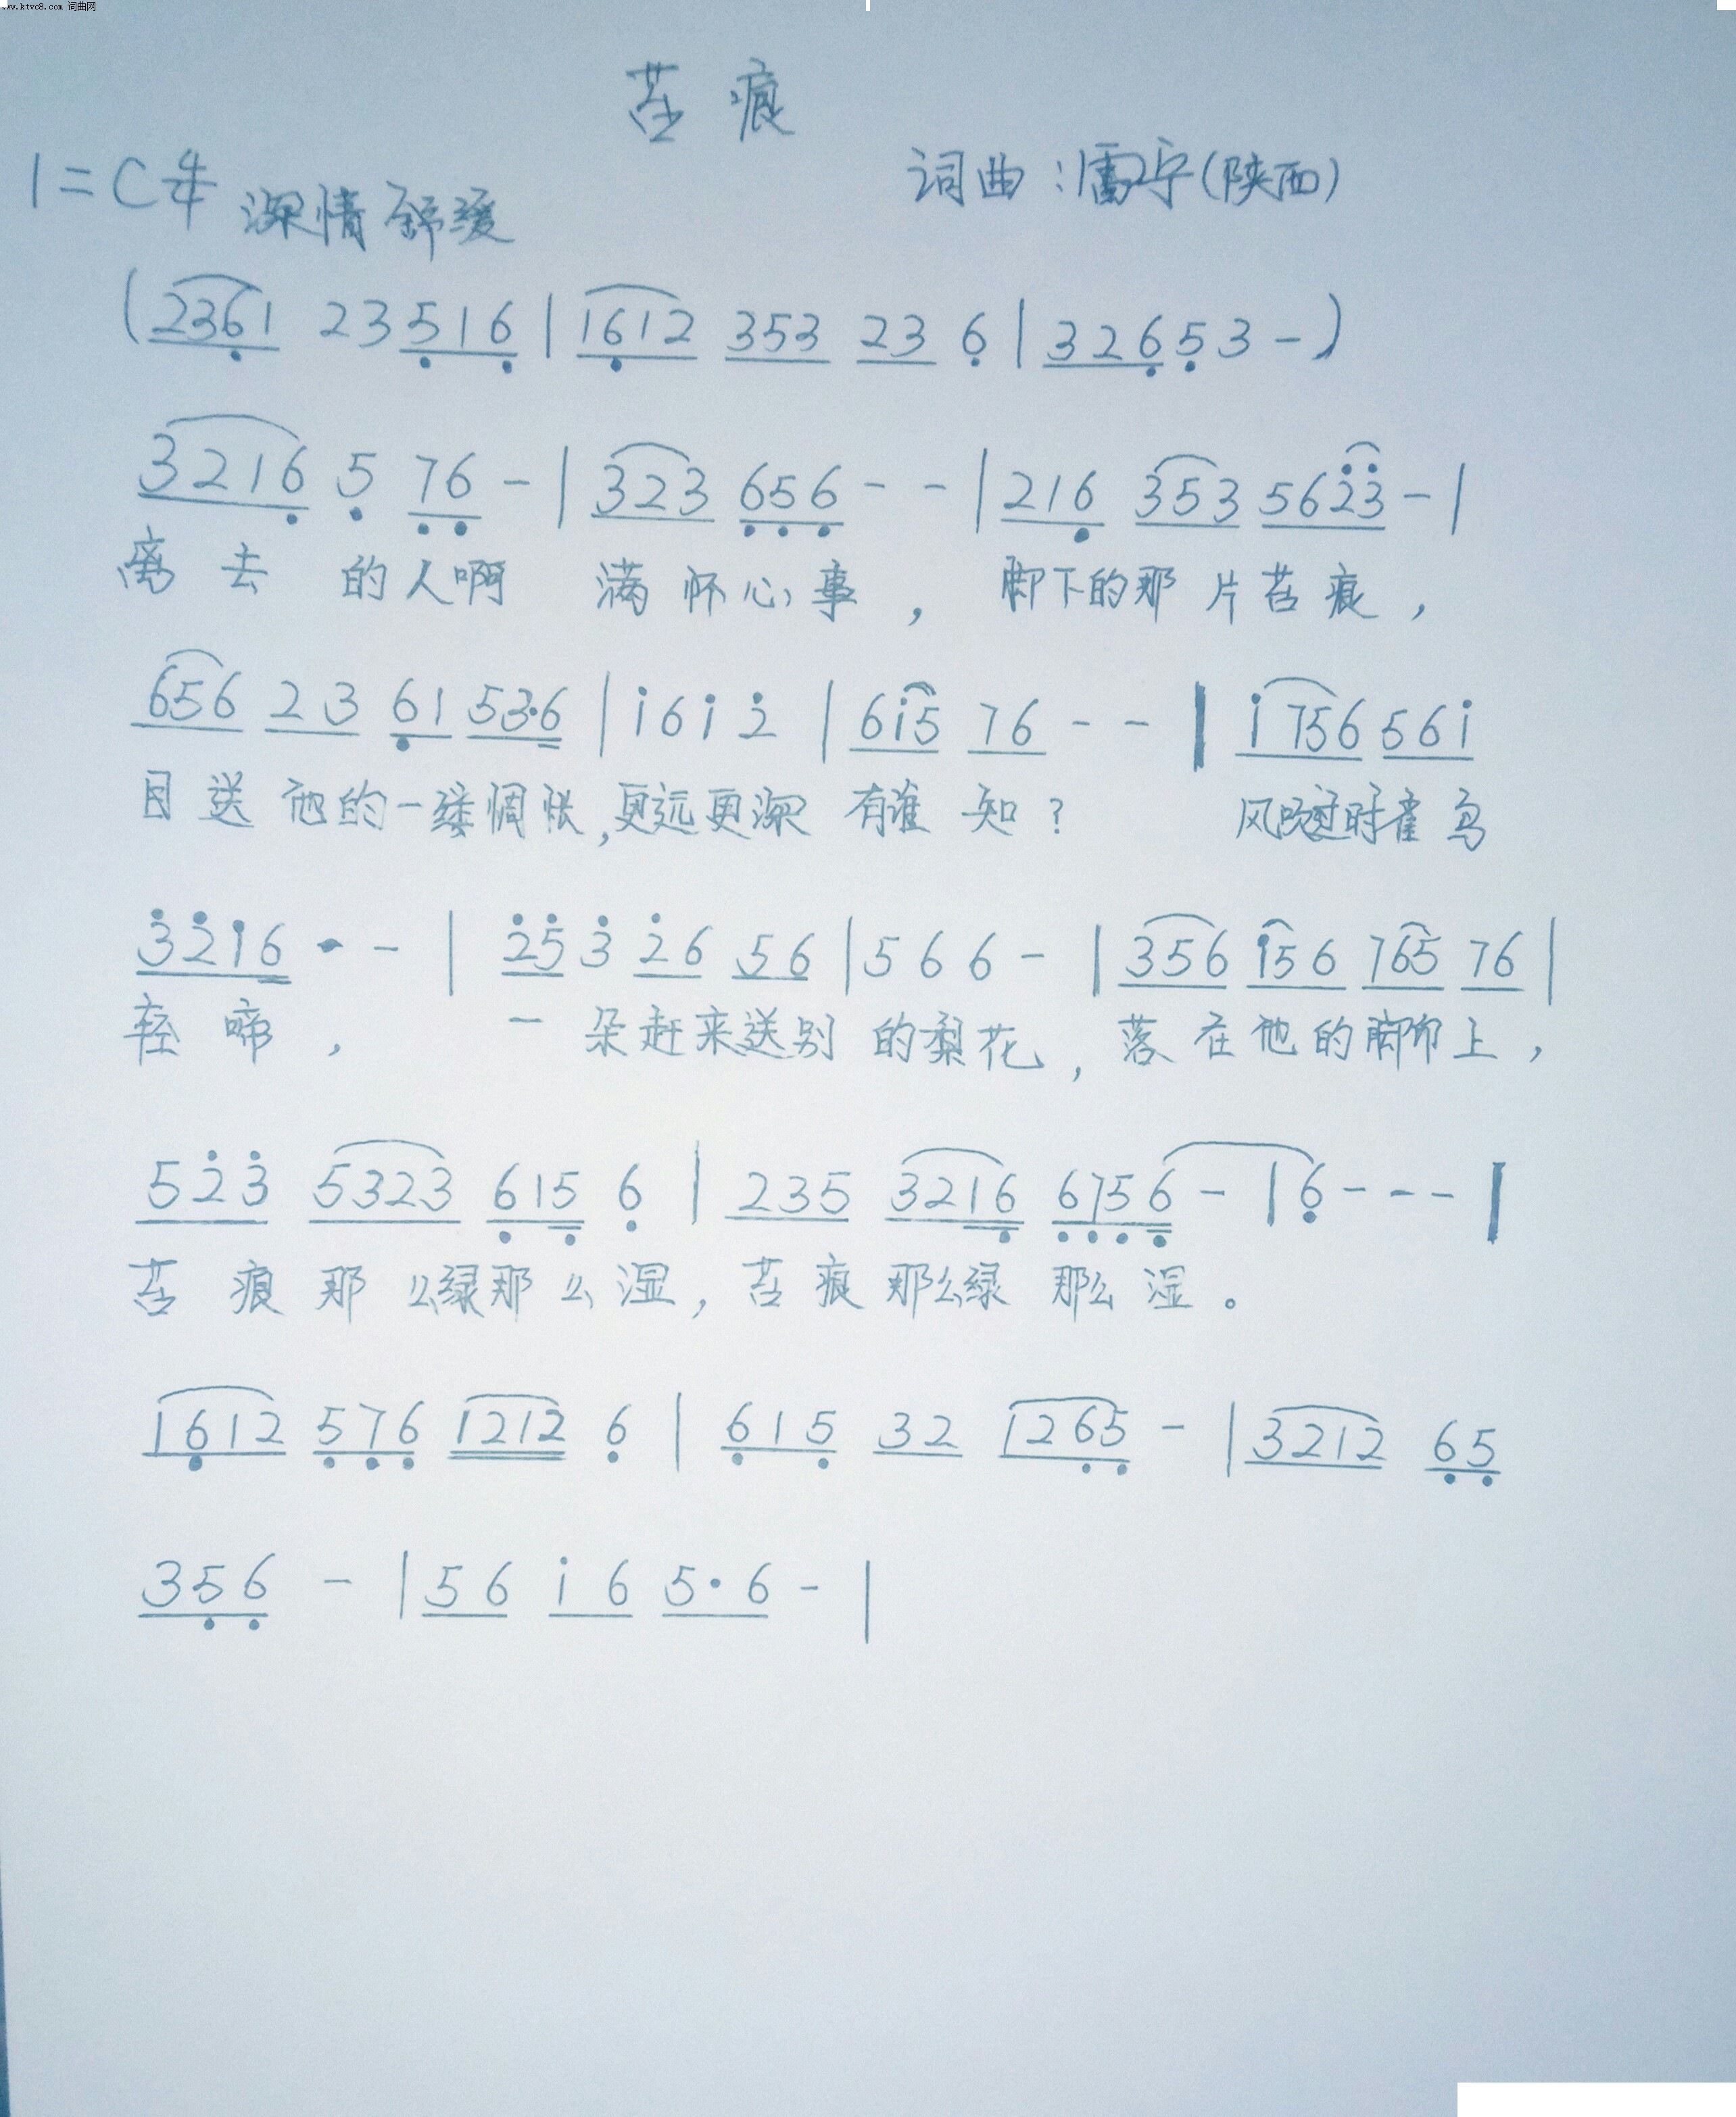 www.ktvc8.com 词曲网
苔痕
1=C 4/4 深情 舒缓 词曲：雷宁(陕西)
(2361 23516|1612 353 23 6|32653-)
3216 5 76-|323 656--|216 353 5623-|
离去的人啊 满怀心事， 脚下的那片苔痕，
656 23 61 53·6|i6i2|6i5 76--‖i756 56i
目送他的一缕惆怅,更远更深 有谁知? 风吹过时雀鸟
3216·-|253 26 56|566-|356 i56 765 76|
轻啼， 一朵赶来送别的梨花,落在他的脚印上，
523 5323 615 6|235 3216 6756-|6---‖
苔痕那么绿那么湿，苔痕那么绿那么湿。
1612 576 1212 6|615 32 1265-|3212 65
356-|56 i6 5·6-|